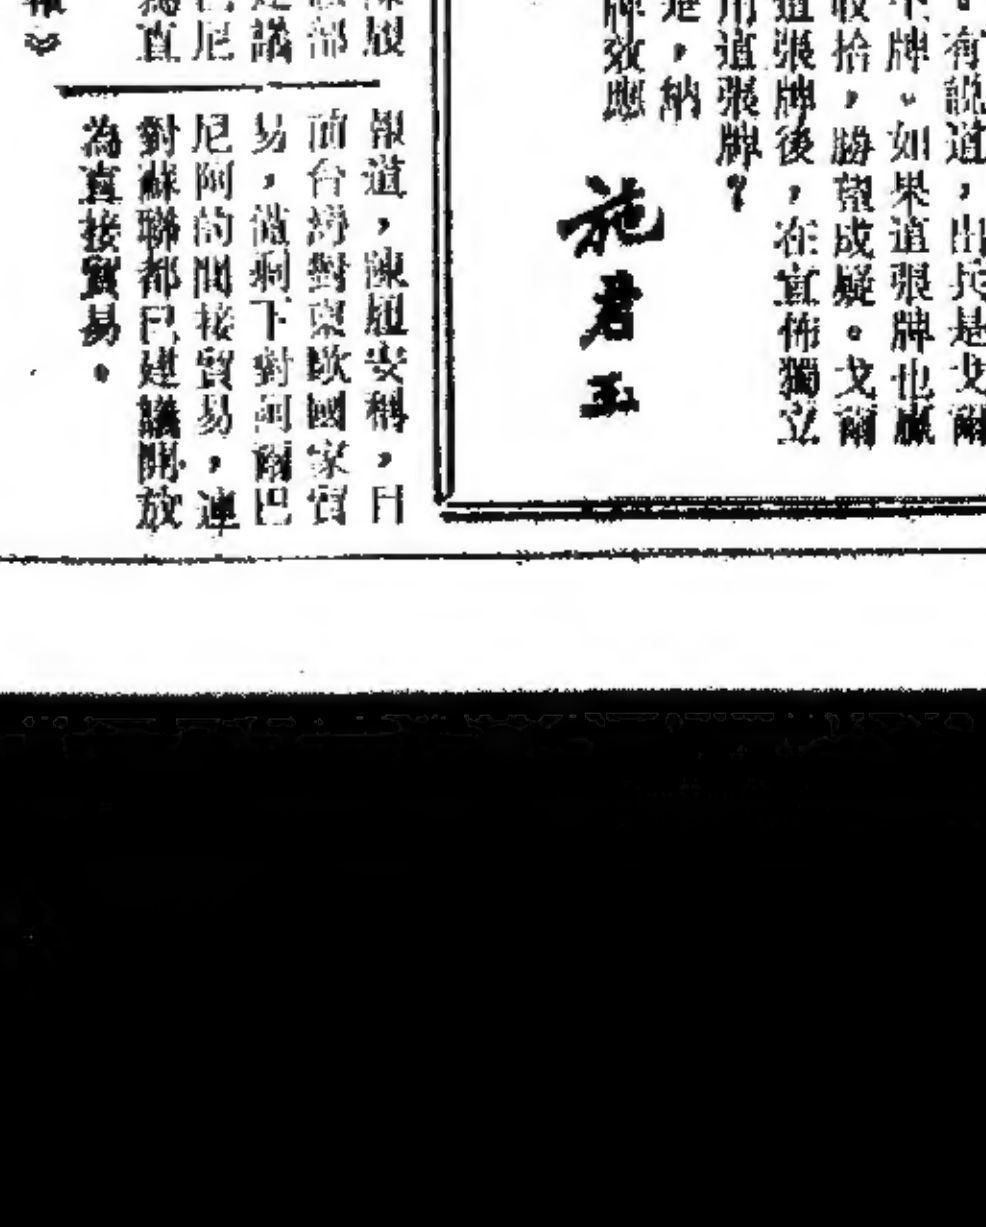 。有說道,出兵是戈爾
牌。如果這張牌也贏
收拾,勝望成疑。戈爾
這張牌後,在宣佈獨立
用這張牌?
進,納
牌效應
施君玉
陳履
部
建議
巴尼
為直
報》
報道,陳履安稱,目
前台灣對東歐國家貿
易,僅剩下對阿爾巴
尼阿的間接貿易,連
對蘇聯都已建議開放
為直接貿易。